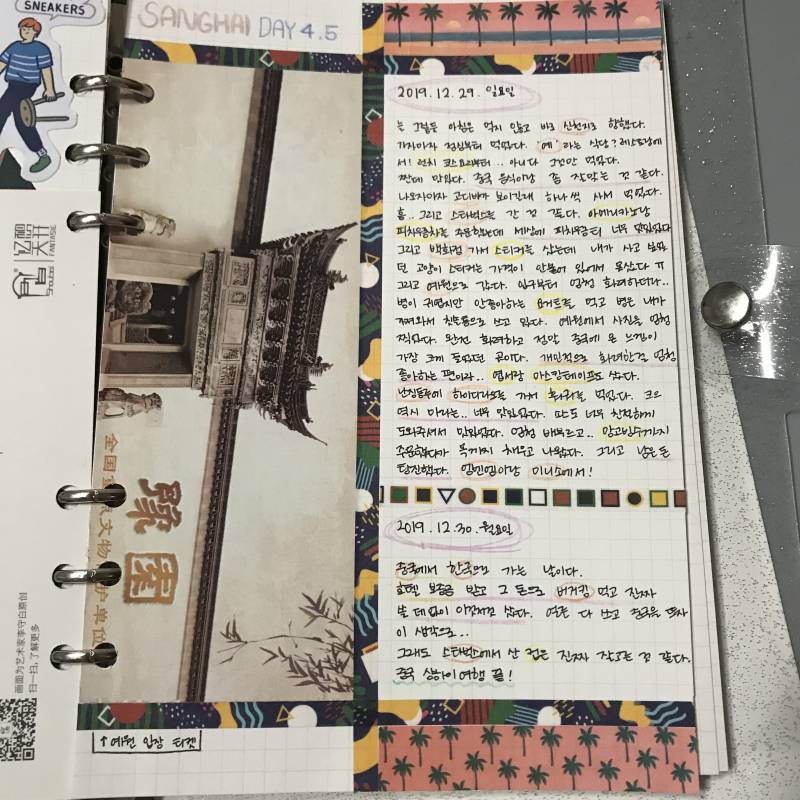 SNEAKERS
SANGHAI DAY 4.5
忆韶
天开
FANTASIE
Shoubai
豫園
全国重点文物保护单位
画面为艺术家李守白原创
扫一扫,了解更多
↑예원 입장 티켓
2019.12.29. 일요일
는 그럴듯 아침은 먹지 않고 바로 신천지로 향했다.
가자마자 점심부터 먹었다. '예' 라는 식당? 레스토랑에
서! 런치 코스요리부터.. 아니다 그것만 먹었다.
짠데 맛있다. 중국 음식이랑 좀 잘맞는 것 같다.
나오자마자 고디바가 보이길래 하나씩 사서 먹었다.
흠.. 그리고 스타벅스는 간 것 같다. 아메리카노랑
피치우롱차를 주문했는데 세상에 피치우롱티 너무 맛있었다
그리고 백화점 가서 스티커를 샀는데 내가 사고 싶었
던 고양이 스티커는 가격이 안붙어 있어서 못샀다 ㅠ
그리고 예원으로 갔다. 입구부터 엄청 화려하더라..
병이 귀엽지만 안좋아하는 요거트를 먹고 병은 내가
가져와서 잔돈통으로 쓰고 있다. 예원에서 사진을 엄청
찍었다. 완전 화려하고 정말 중국에 온 느낌이
가장 크게 들었던 곳이다. 개인적으로 화려한걸 엄청
좋아하는 편이라.. 엽서랑 마스킹테이프도 샀다.
난징동루에 하이디라오를 가서 훠궈를 먹었다. 크으
역시 마라는.. 너무 맛있었다. 다들 너무 친절하게
도와주셔서 맛있었다. 엄청 배부르고.. 망고빙수까지
주문했다가 목까지 채우고 나왔다. 그리고 남은 돈
탕진했다. 엠엔엠이랑 미니소에서!
2019.12.30. 월요일
중국에서 한국으로 가는 날이다.
호텔 보증금 받고 그 돈으로 버거킹 먹고 진짜
쓸 데 없이 이것저것 샀다. 얼른 다 쓰고 중국을 떠나자
이 생각으로..
그래도 스타벅스에서 산 컵은 진짜 잘 산 것 같다.
중국 상하이 여행 끝!